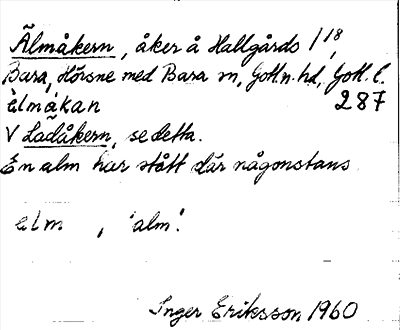 Älmåkern, åker å Hallgårds 1/18,
Bara, Hörsne med Bara sn, Gotl.n. hd, Gotl. l.
elmåkan 287
V Ladåkern, se detta.
En alm har stått där någonstans.
elm, 'alm'.
Inger Eriksson 1960